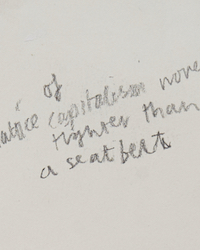 of
capitalism
tighter than
a seatbelt